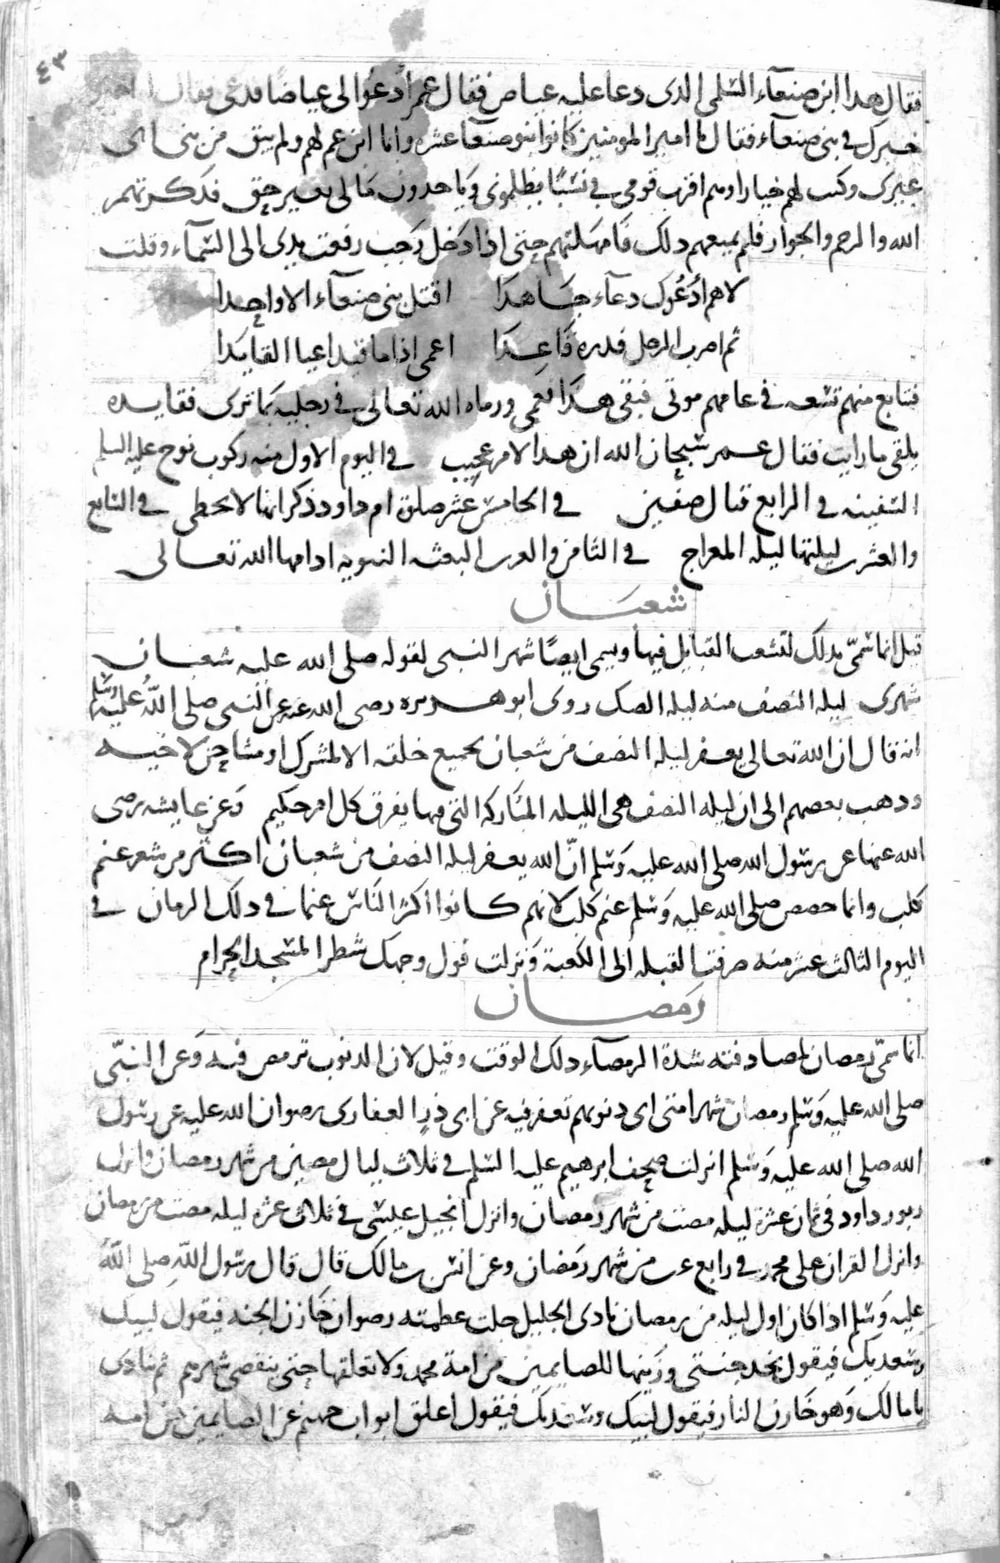 ٤٣
فقال هذا ابن صنعآء السلمى الدى دعا عليه عياض فقال عمر ادعوا لى عياضا فدعى فقال اخبرنى
خبرك فى بنى صنعآء فقال يا امير المومنين كانوا بنو صنعا عشرة وانا ابن عم لهم ولم يبق من بنى ابى
غيرى وكنت لهم جارا وهم اقرب قومى فى نسبًا يظلمونى وياخدون مالى بغير حق فدكرتهم
الله والرحم والجوار فلم يمنعهم دلك فامهلتهم حتى ادا دخل رجب رفعت يدى الى السمآء وقلت
لاهم ادعوك دعآء جاهدا اقتل بنى صنعآء الا واحدا
ثم اضرب الرجل فدره قاعدا اعمى اذا ما قيد اعيا القايدا
فتتابع منهم تسعه فى عامهم موتى فبقى هدا فعمى ورماه الله تعالى فى رجليه بما ترى فقايده
يلقى ما رايت فقال عمر سبحان الله ان هدا الامر عجيب فى اليوم الاول منه ركوب نوح عليه السلم
السفينه فى الرابع قتال صفين فى الخامس عشر صلوة ام داود ذكر انها لا تخطى فى السابع
والعشرين ليلتها ليله المعراج فى الثامن والعشرين البعثه النبويه ادامها الله تعالى
شعبان
قيل انما سمّى بدلك لتشعب القبايل فيها ويسمى ايضًا شهر النبى لقوله صلى الله عليه شعبان
شهرى ليله النصف منه ليله الصك روى ابو هريره رضى الله عنه عن النبى صلى الله عليه وسلم
انه قال ان الله تعالى يغفر ليله النصف من شعبان لجميع خلقه الا لمشرك او مشاحن لاخيه
ودهب بعضهم الى ان ليله النصف هى الليله المباركه التى فيها يفرق كل امر حكيم وعن عايشه رضى
الله عنها عن رسول الله صلى الله عليه وسلم انّ الله يغفر ليله النصف من شعبان اكثر من شعر غنم
كلب وانما خصص صلى الله عليه وسلم غنم كلب لانهم كانوا اكثر الناس غنما فى دلك الزمان فى
اليوم الثالث عشر منه صرفت القبله الى الكعبة ونزلت فول وجهك شطر المسجد الحرام
رمضان
انما سمّى رمضان لمصادفته شدة الرمضآء دلك الوقت وقيل لان الدنوب ترمض فيه وعن النبّى
صلى الله عليه وسلم رمضان شهر امتى اى دنوبهم تغفر فيه عن ابى ذر الغفارى رضوان الله عليه عن رسول
الله صلى الله عليه وسلم انزلت صحف ابرهيم عليه السلم فى ثلاث ليال مضين من شهر رمضان وانزل
زبور داود فى ثمان عشرة ليله مضت من شهر رمضان وانزل انجيل عيسى فى ثلاث عشره ليله مضت من رمضان
وانزل القران على محمد فى رابع عشرين من شهر رمضان وعن انس بن مالك قال قال رسول الله صلى الله
عليه وسلم اذا كان اول ليله من رمضان نادى الجليل جلت عظمته رضوان خازن الجنه فيقول لبيك
وسعديك فيقول نجد جنتى وزينها للصايمين من امة محمد ولا تغلقها حتى ينقضى شهرهم ثم ينادى
يا مالك وهو خازن النار فيقول لبيك وسعديك فيقول اغلق ابواب جهنم عن الصايمين من امة